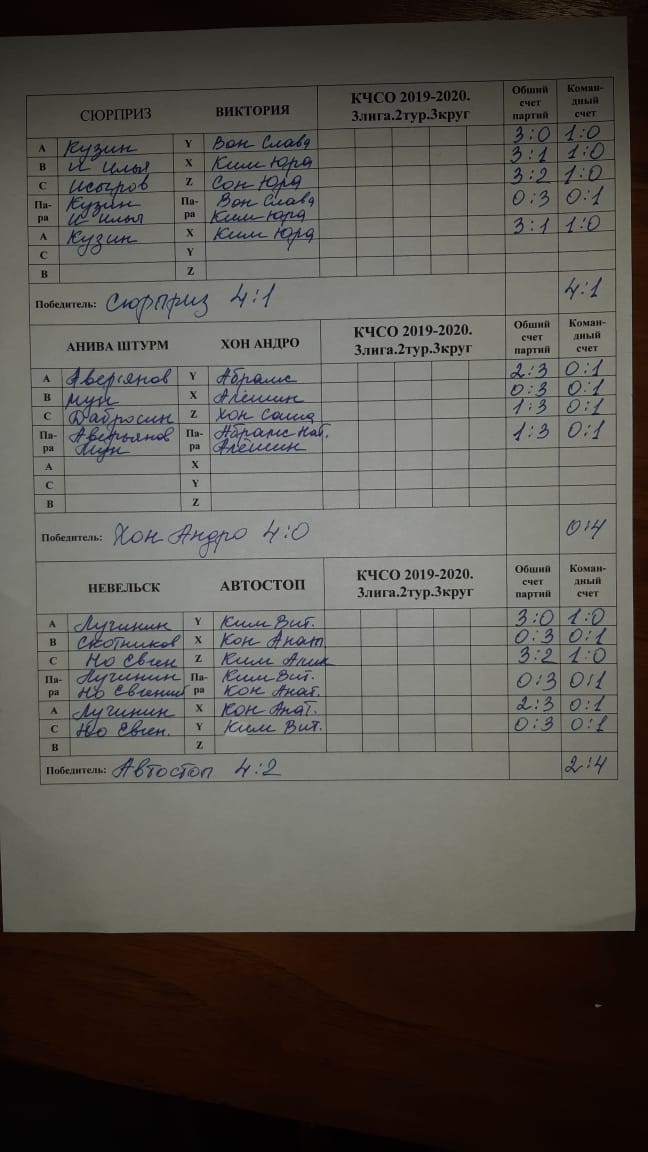 СЮРПРИЗ ВИКТОРИЯ КЧСО 2019-2020. 3лига.2тур.3круг Общий счет партий Коман-дный счет
A Кузин Y Вон Слава 3:0 1:0
B И Илья X Ким Юра 3:1 1:0
C Z Сон Юра 3:2 1:0
Па-ра Кузин Па-ра Вон Слава 0:3 0:1
И Илья Ким Юра
A Кузин X Ким Юра 3:1 1:0
C Y
B Z
Победитель: Сюрприз 4:1 4:1
АНИВА ШТУРМ ХОН АНДРО КЧСО 2019-2020. 3лига.2тур.3круг Общий счет партий Коман-дный счет
A Аверьянов Y Абрамс 2:3 0:1
B Мун X Алёшин 0:3 0:1
C Дабросин Z Хон Саша 1:3 0:1
Па-ра Аверьянов Па-ра Абрамс Нат. 1:3 0:1
Мун Алёшин
A X
C Y
B Z
Победитель: Хон Андро 4:0 0:4
НЕВЕЛЬСК АВТОСТОП КЧСО 2019-2020. 3лига.2тур.3круг Общий счет партий Коман-дный счет
A Лучинин Y Ким Вит. 3:0 1:0
B Скотников X Кон Анат. 0:3 0:1
C Но Евген Z Ким Алик 3:2 1:0
Па-ра Лучинин Па-ра Ким Вит. 0:3 0:1
Но Евгений Кон Анат.
A Лучинин X Кон Анат. 2:3 0:1
C Но Евген. Y Ким Вит. 0:3 0:1
B Z
Победитель: Автостоп 4:2 2:4